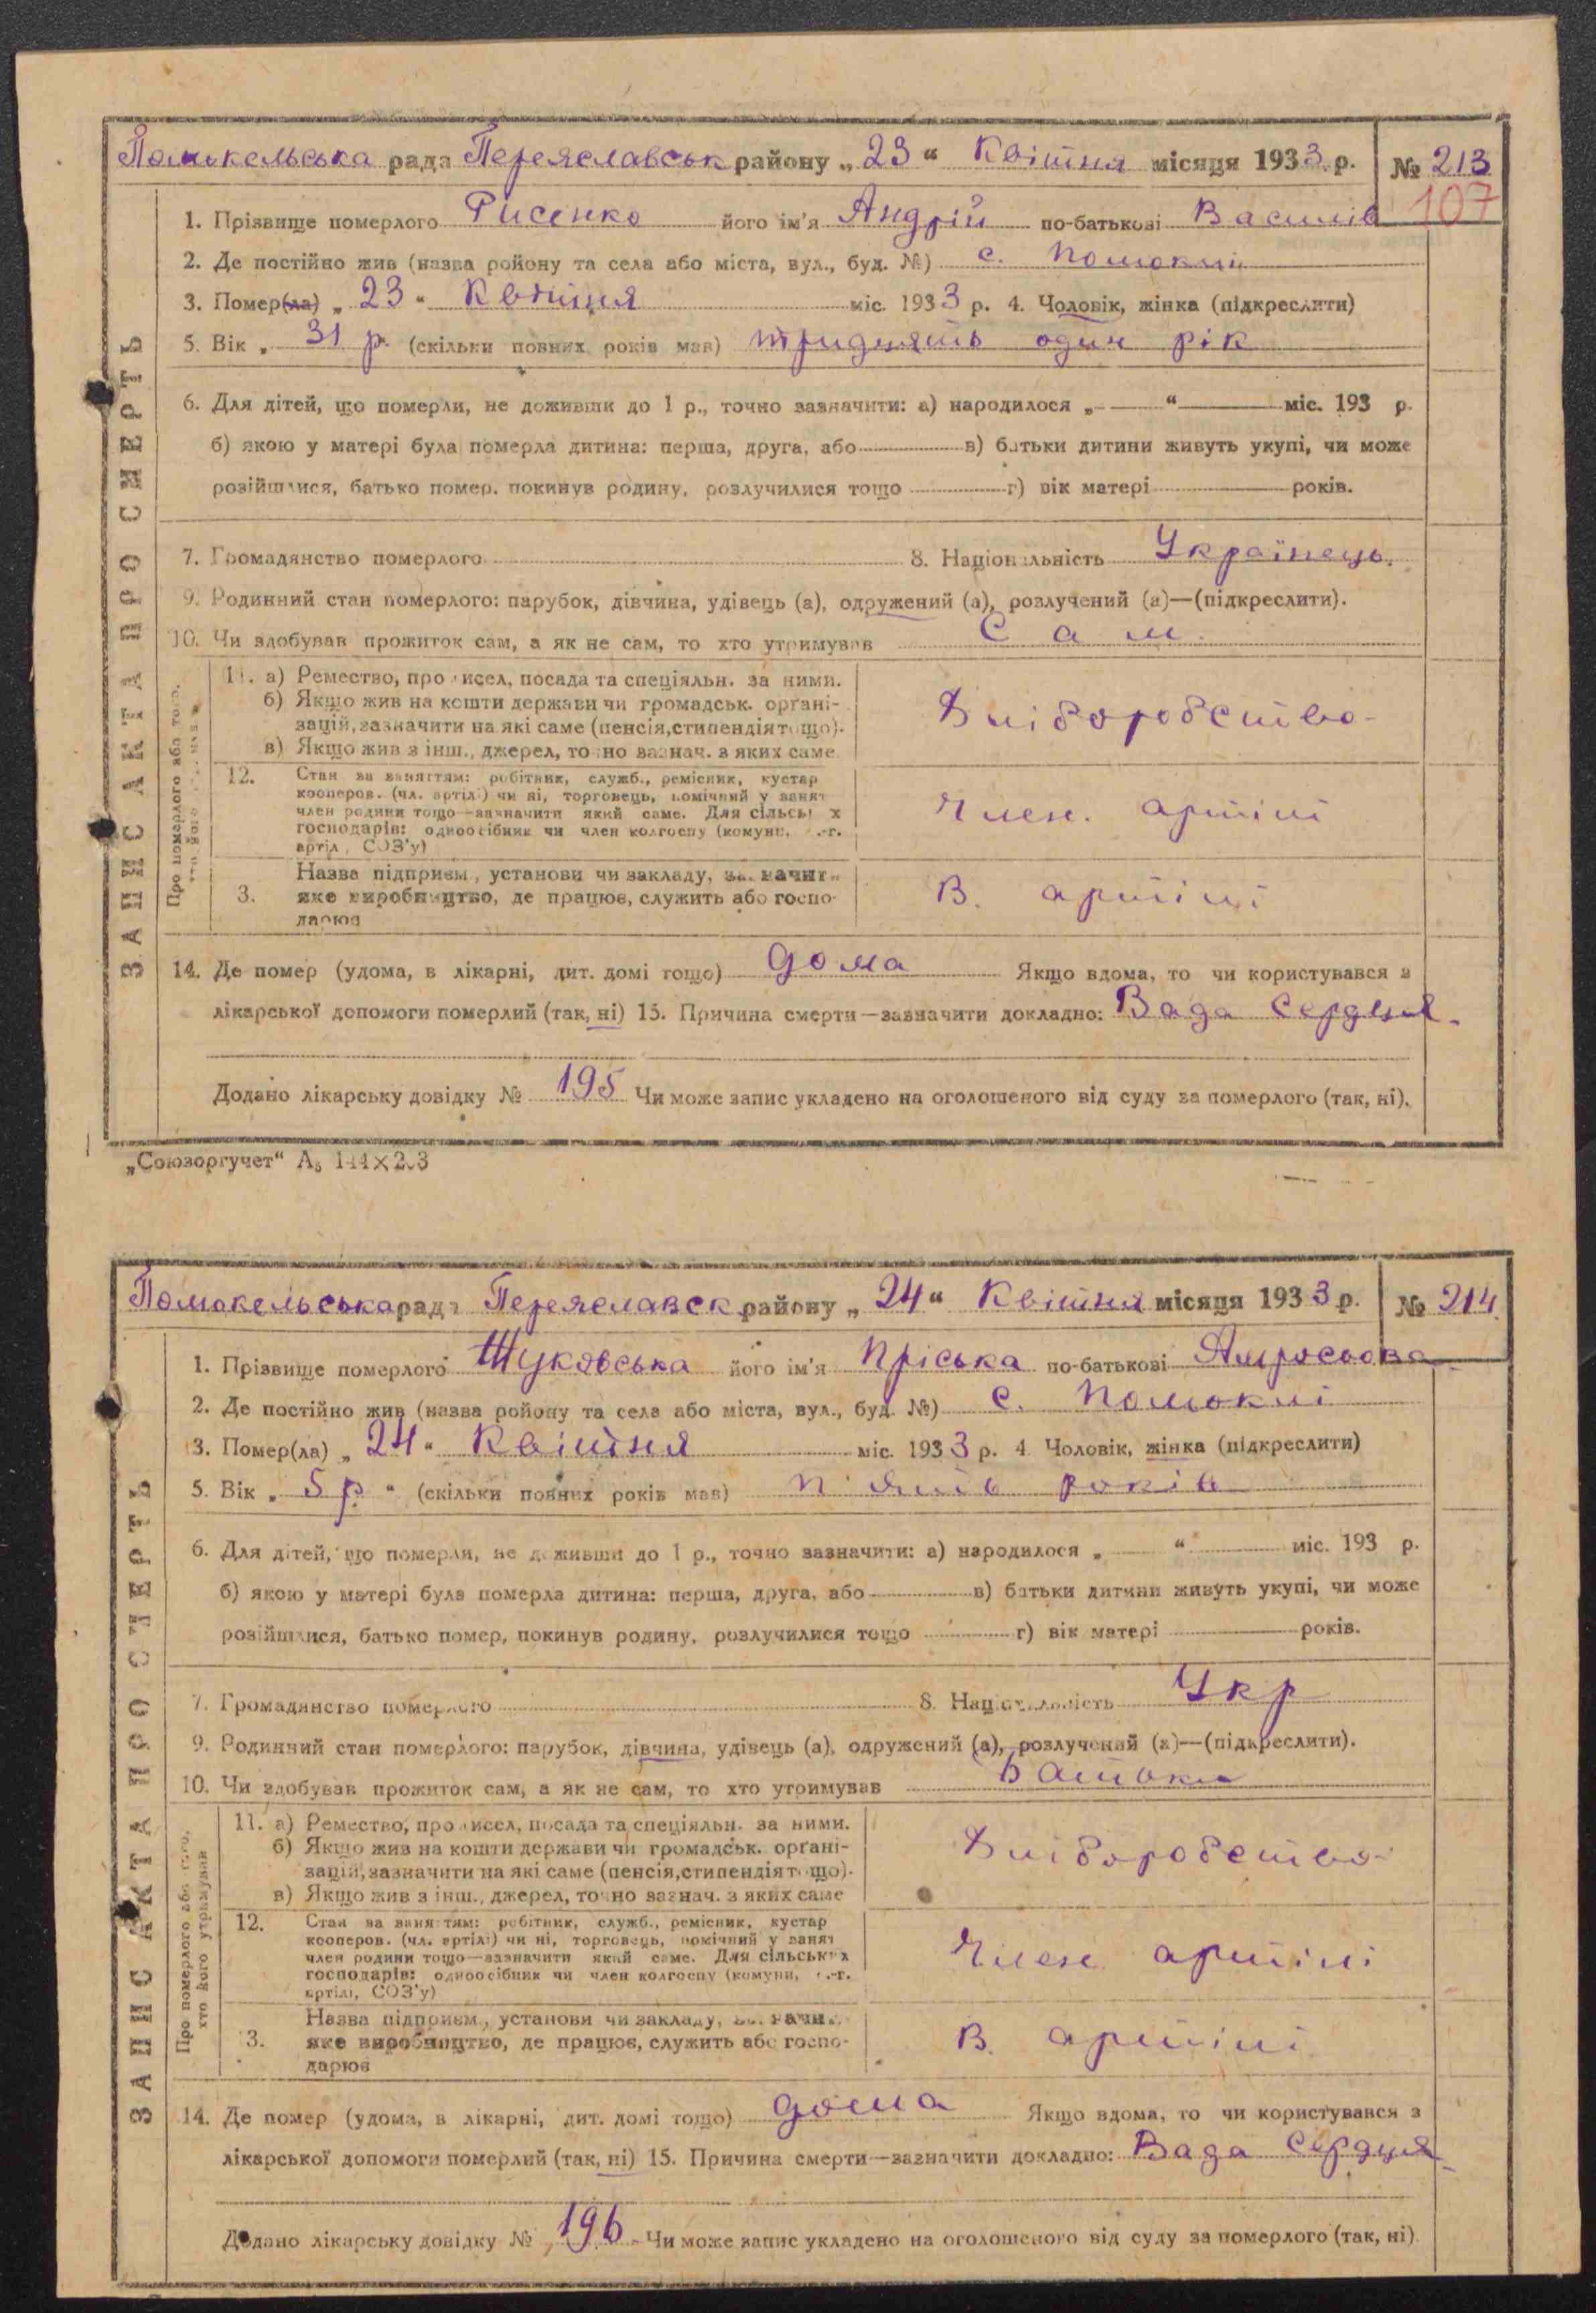 Помокельська рада Переяславськ району „ 23 “ Квітня місяця 1933 р. № 213
107
1. Прізвище померлого Рисенко його ім'я Андрій по-батькові Василів
2. Де постійно жив (назва ройону та села або міста, вул., буд. №) с. Помоклі
3. Помер(ла) „ 23 “ Квітня міс. 1933 р. 4. Чоловік, жінка (підкреслити)
5. Вік „ 31 р. (скільки повних років мав) тридцять один рік
6. Для дітей, що померли, не доживши до 1 р., точно зазначити: а) народилося „ “ міс. 193 р.
б) якою у матері була померла дитина: перша, друга, або в) батьки дитини живуть укупі, чи може
розійшлися, батько помер, покинув родину, розлучилися тощо г) вік матері років.
7. Громадянство померлого 8. Національність Українець.
9. Родинний стан померлого: парубок, дівчина, удівець (а), одружений (а), розлучений (а)—(підкреслити).
10. Чи здобував прожиток сам, а як не сам, то хто утримував Сам.
ЗАПИС АКТА ПРО СМЕРТЬ
Про померлого або того,
11. а) Ремество, промисел, посада та спеціяльн. за ними.
б) Якщо жив на кошти держави чи громадськ. орґані-
зацій, зазначити на які саме (пенсія, стипендія тощо).
в) Якщо жив з інш., джерел, точно зазнач. з яких саме
Хліборобство-
12. Стан за заняттям: робітник, служб., ремісник, кустар
кооперов. (чл. артілі) чи ні, торговець, помічний у занят
член родини тощо—зазначити який саме. Для сільськ х
господарів: одноосібник чи член колгоспу (комуни, с.-г.
артіл, СОЗ'у)
Член. артілі
3. Назва підприєм., установи чи закладу, зазначити
яке виробництво, де працює, служить або госпо-
дарює
В. артілі
14. Де помер (удома, в лікарні, дит. домі тощо) дома Якщо вдома, то чи користувався з
лікарської допомоги померлий (так, ні) 15. Причина смерти—зазначити докладно: Вада Серdця.
Додано лікарську довідку № 195 Чи може запис укладено на оголошеного від суду за померлого (так, ні).
„Союзоргучет“ А₅ 144×203
Помокельська рада Переяславск району „ 24 “ Квітня місяця 1933 р. № 214
1. Прізвище померлого Жуковська його ім'я Пріська по-батькові Амросьова
2. Де постійно жив (назва ройону та села або міста, вул., буд. №) с. Помоклі
3. Помер(ла) „ 24 “ Квітня міс. 1933 р. 4. Чоловік, жінка (підкреслити)
5. Вік „ 5 р. “ (скільки повних років мав) п'ять років
6. Для дітей, що померли, не доживши до 1 р., точно зазначити: а) народилося „ “ міс. 193 р.
б) якою у матері була померла дитина: перша, друга, або в) батьки дитини живуть укупі, чи може
розійшлися, батько помер, покинув родину, розлучилися тощо г) вік матері років.
7. Громадянство померлого 8. Національність Укр
9. Родинний стан померлого: парубок, дівчина, удівець (а), одружений (а), розлучений (а)—(підкреслити).
10. Чи здобував прожиток сам, а як не сам, то хто утримував Батьки
ЗАПИС АКТА ПРО СМЕРТЬ
Про померлого або того,
хто його утримував
11. а) Ремество, промисел, посада та спеціяльн. за ними.
б) Якщо жив на кошти держави чи громадськ. орґані-
зацій, зазначити на які саме (пенсія, стипендія тощо).
в) Якщо жив з інш., джерел, точно зазнач. з яких саме
Хліборобство-
12. Стан за заняттям: робітник, служб., ремісник, кустар
кооперов. (чл. артілі) чи ні, торговець, помічний у занят
член родини тощо—зазначити який саме. Для сільських
господарів: одноосібник чи член колгоспу (комуни, с.-г.
артілі, СОЗ'у)
Член артілі
3. Назва підприєм., установи чи закладу, зазначит
яке виробництво, де працює, служить або госпо-
дарює
В. артілі
14. Де помер (удома, в лікарні, дит. домі тощо) дома Якщо вдома, то чи користувався з
лікарської допомоги померлий (так, ні) 15. Причина смерти—зазначити докладно: Вада Сердця
Додано лікарську довідку № 196 Чи може запис укладено на оголошеного від суду за померлого (так, ні)